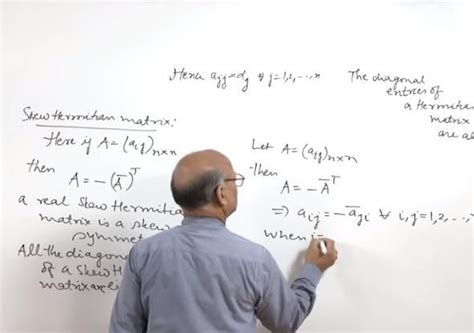 Hence ajj = dj ∀ j=1,2,...,n
The diagonal
entries of
a Hermitian
matrix
are
Skew Hermitian matrix:
Here if A=(aij)n×n
then
A = −(A̅)ᵀ
a real Skew Hermitian
matrix is a skew
symmet
All the diagonal
of a Skew H
matrix are
Let A=(aij)n×n
then
A = −A̅ᵀ
⇒ aij = −a̅ji ∀ i,j=1,2,...,
when i